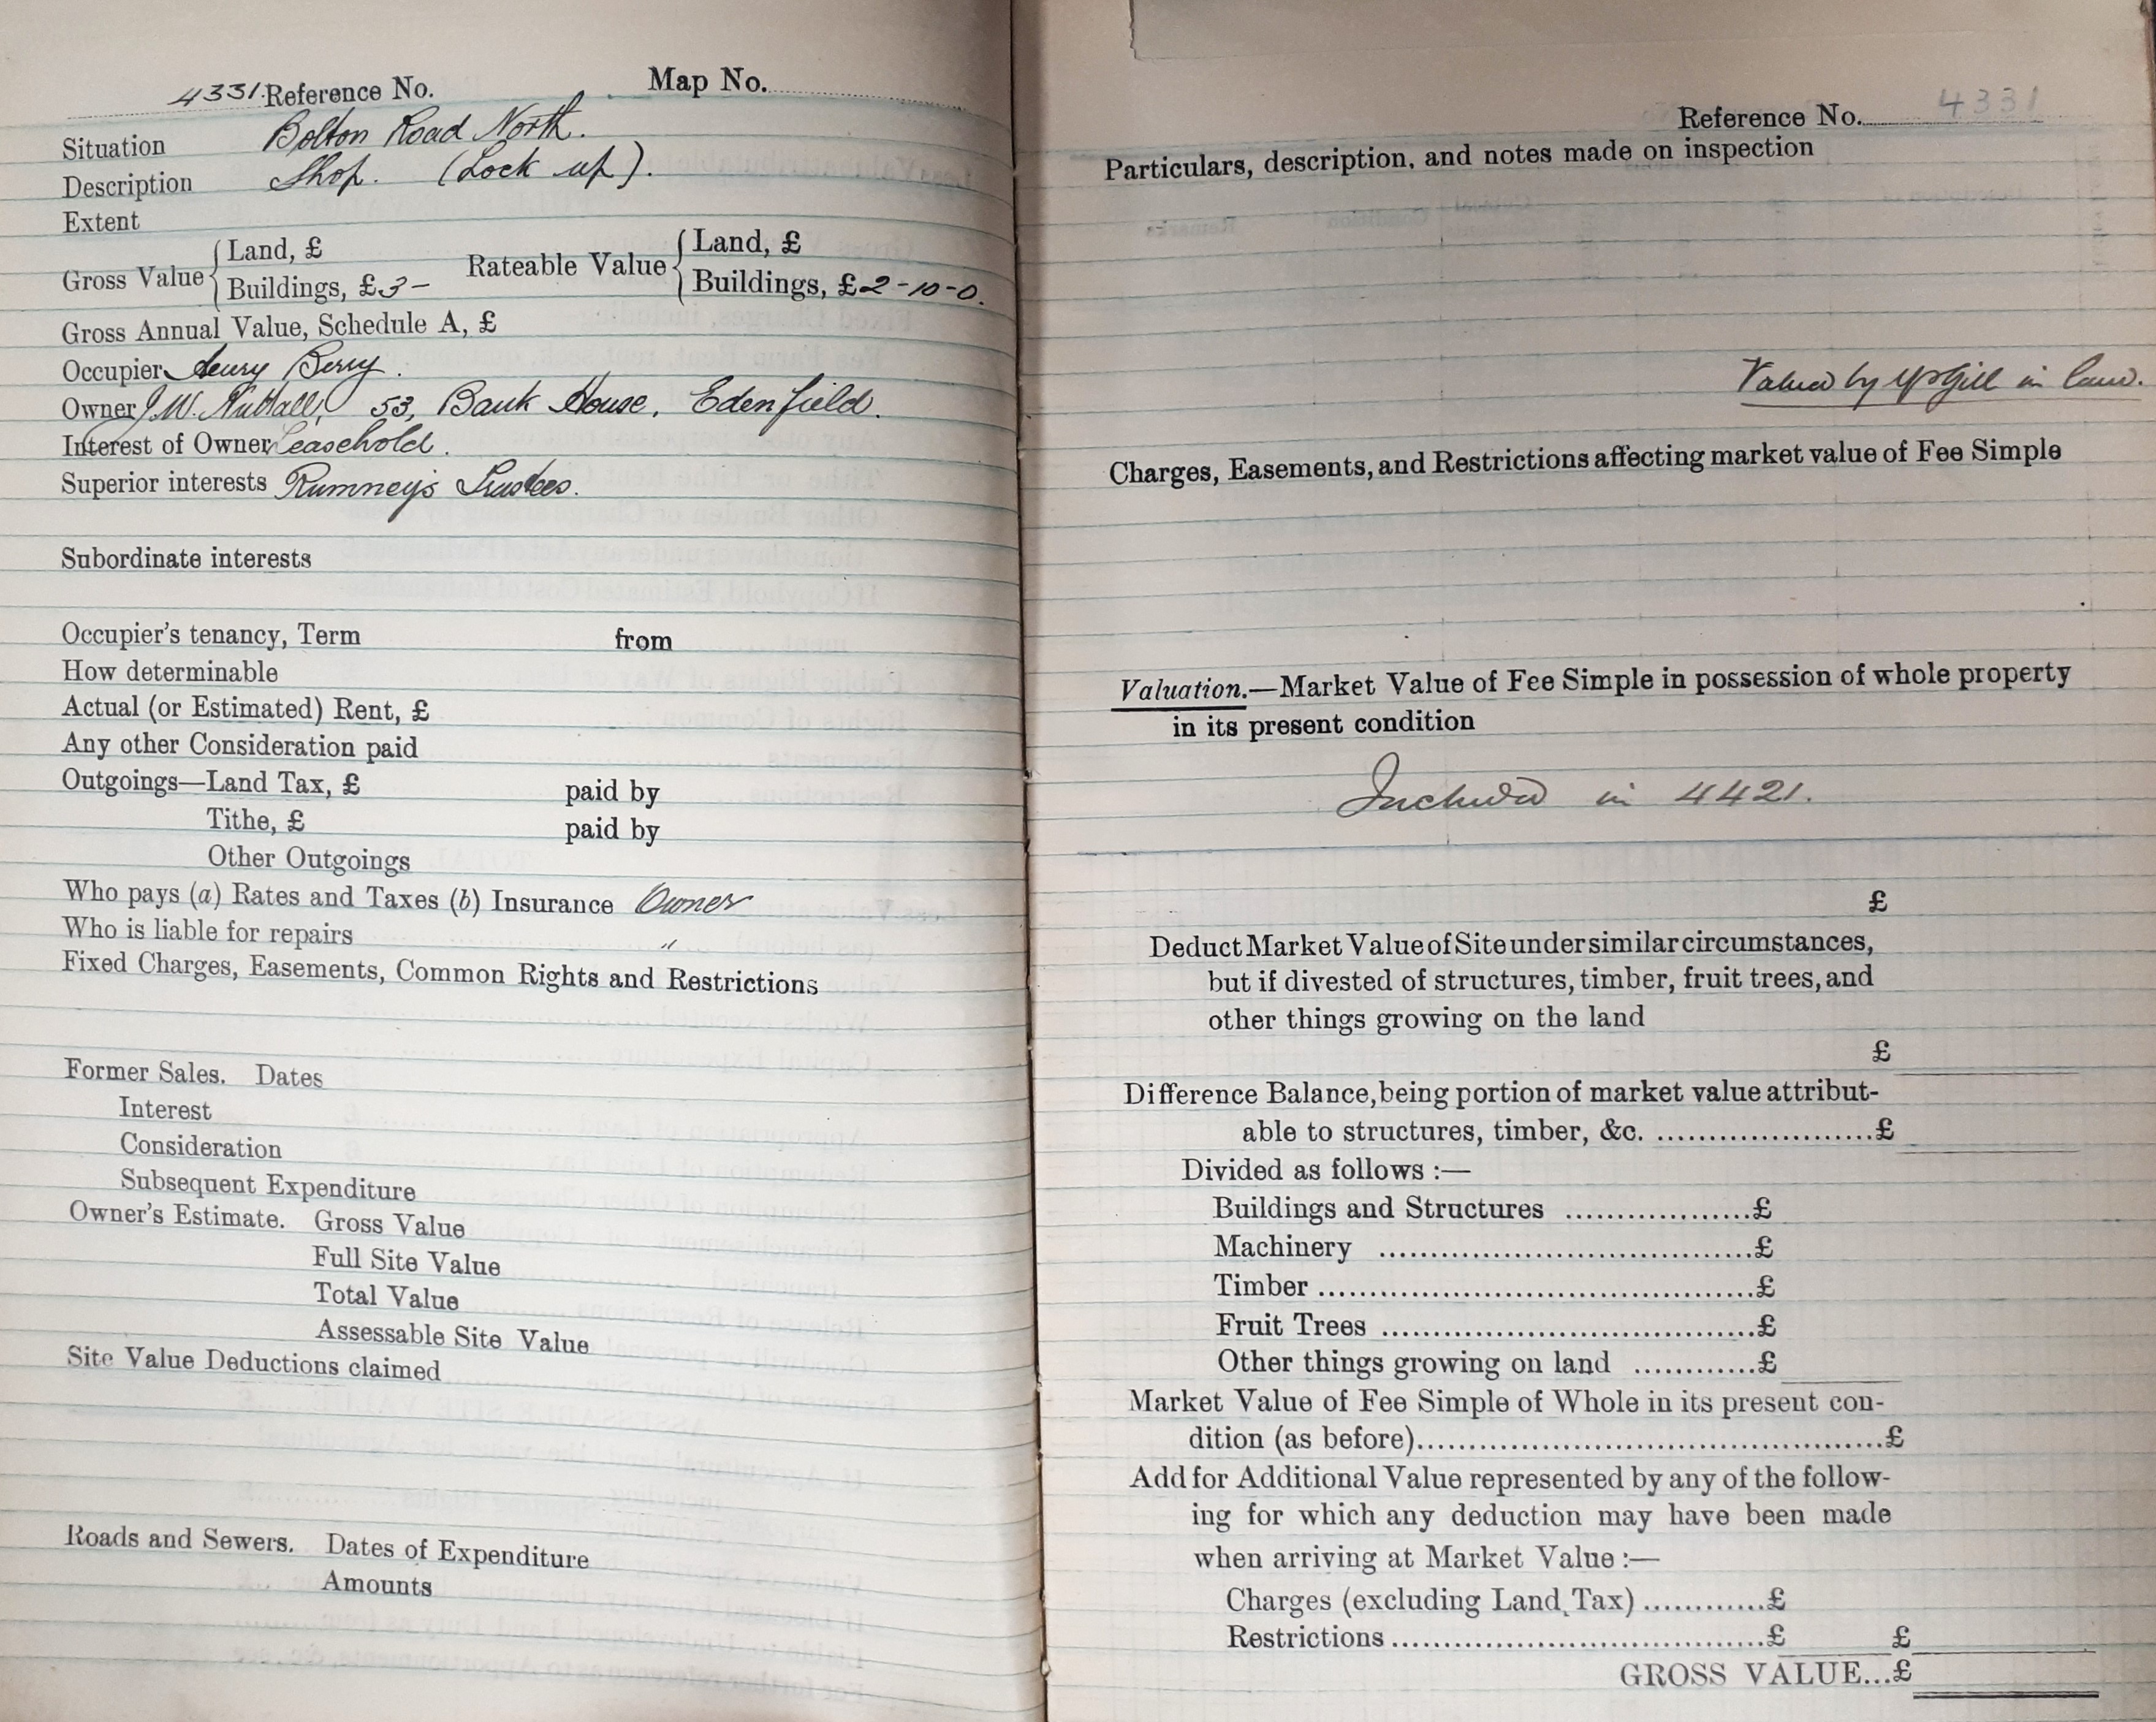 4331 Reference No. Map No.
Situation Bolton Road North.
Description Shop. (Lock up).
Extent
Gross Value { Land, £ Rateable Value { Land, £
Buildings, £3 - Buildings, £2-10-0.
Gross Annual Value, Schedule A, £
Occupier Henry Berry.
Owner J.W. Nuttall, 53, Bank House, Edenfield.
Interest of Owner Leasehold.
Superior interests Rumney's Trustees.
Subordinate interests
Occupier's tenancy, Term from
How determinable
Actual (or Estimated) Rent, £
Any other Consideration paid
Outgoings—Land Tax, £ paid by
Tithe, £ paid by
Other Outgoings
Who pays (a) Rates and Taxes (b) Insurance Owner
Who is liable for repairs "
Fixed Charges, Easements, Common Rights and Restrictions
Former Sales. Dates
Interest
Consideration
Subsequent Expenditure
Owner's Estimate. Gross Value
Full Site Value
Total Value
Assessable Site Value
Site Value Deductions claimed
Roads and Sewers. Dates of Expenditure
Amounts
Reference No. 4331
Particulars, description, and notes made on inspection
Valued by Gill in
Charges, Easements, and Restrictions affecting market value of Fee Simple
Valuation.—Market Value of Fee Simple in possession of whole property
in its present condition
Included in 4421.
£
Deduct Market Value of Site under similar circumstances,
but if divested of structures, timber, fruit trees, and
other things growing on the land
£
Difference Balance, being portion of market value attribut-
able to structures, timber, &c. ......................£
Divided as follows :—
Buildings and Structures ...................£
Machinery ....................................£
Timber ..........................................£
Fruit Trees .....................................£
Other things growing on land ............£
Market Value of Fee Simple of Whole in its present con-
dition (as before)..............................................£
Add for Additional Value represented by any of the follow-
ing for which any deduction may have been made
when arriving at Market Value :—
Charges (excluding Land Tax) ............£
Restrictions ......................................£ £
GROSS VALUE...£